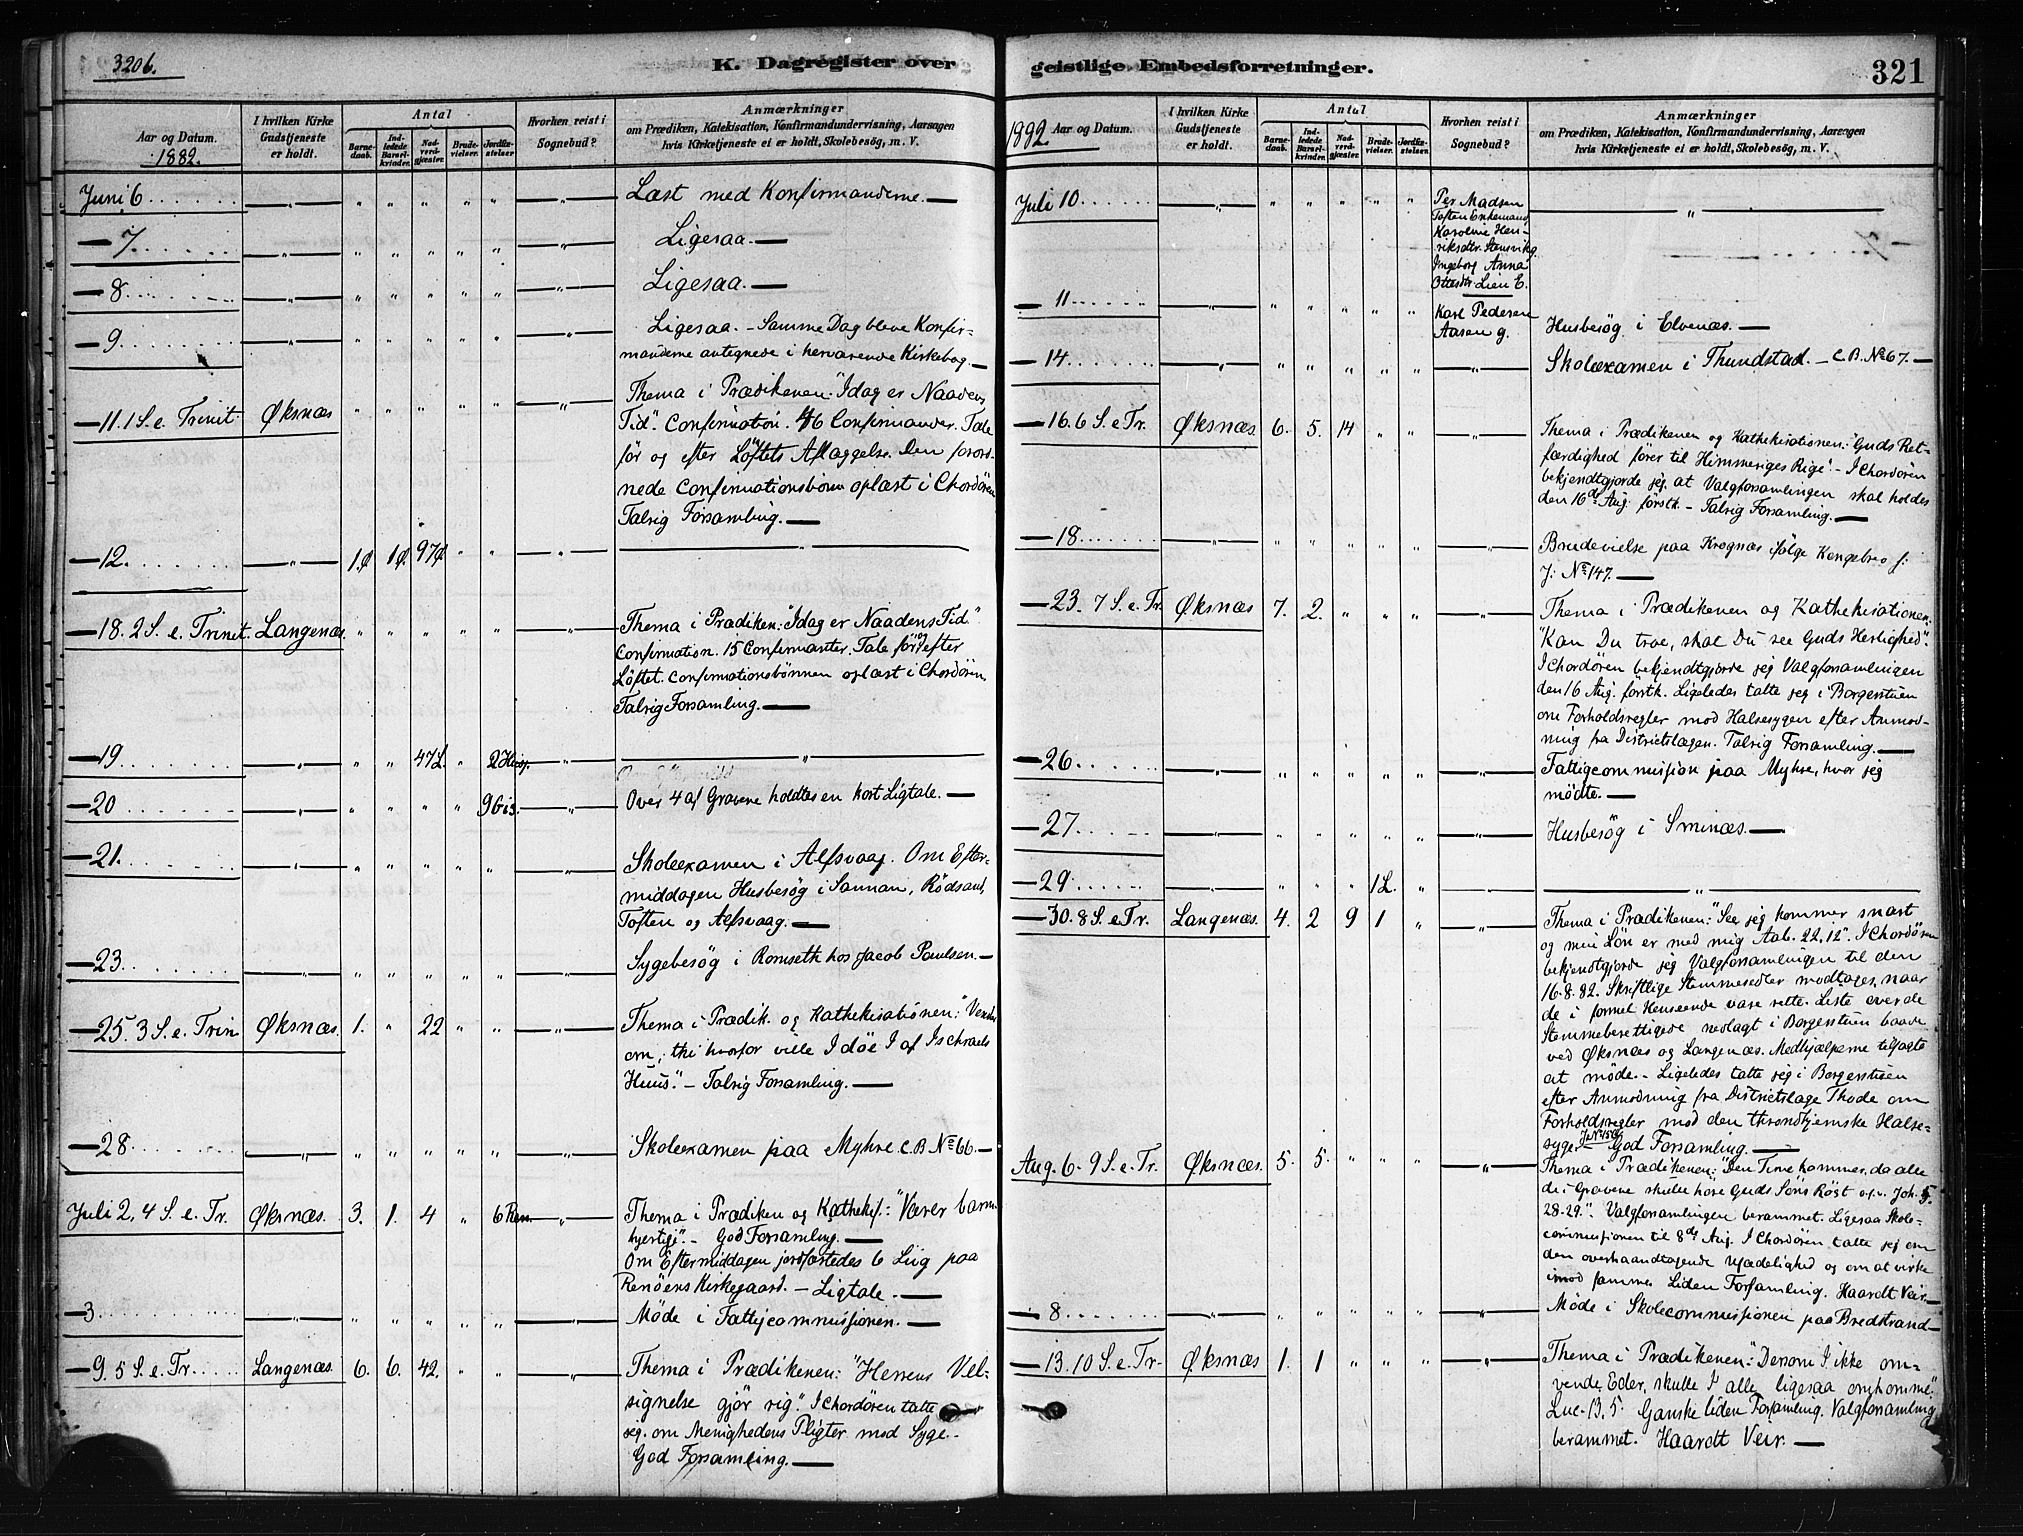 3206.
K. Dagregister over
Aar og Datum.
1882.
I hvilken Kirke
Gudstjeneste
er holdt.
Antal
Barne-
daab.
Ind-
ledede
Barsel-
kvinder.
Nad-
verd-
gjæster.
Brude-
vielser.
Jordfæ-
stelser
Hvorhen reist i
Sognebud?
Anmærkninger
om Prædiken, Katekisation, Konfirmandundervisning, Aarsagen
hvis Kirketjeneste ei er holdt, Skolebesøg, m. V.
Juni 6 „ „ „ „ „ „ „ Læst med Konfirmanderne.
— 7. „ „ „ „ „ „ „ Ligesaa.
— 8 „ „ „ „ „ „ „ Ligesaa.
— 9 „ „ „ „ „ „ „ Ligesaa. – Samme Dag bleve Konfir-
manderne antegnede i herværende Kirkebog.
— 11. 1 S. e. Trinit. Øksnæs „ „ „ „ „ „ Thema i Prædikenen: "Idag er Naadens
Tid". Confirmation. 46 Confirmander. Tale
før og efter Løftets Aflæggelse. Den forord-
nede Confirmationsbøn oplæst i Chordøren
Talrig Forsamling.
— 12. „ 1.Ø 1Ø. 97Ø „ „ „ „
— 18. 2 S. e. Trinit. Langenæs. „ „ „ „ „ „ Thema i Prædiken: "Idag er Naadens Tid."
Confirmation. 15 Confirmanter. Tale før og efter
Løftet. Confirmationsbønnen oplæst i Chordøren
Talrig Forsamling.
— 19 „ „ „ 47L. „ 2 „ „
— 20 „ „ „ „ „ 9 „ Over 4 af Gravene holdtes en kort Ligtale.
— 21. „ „ „ „ „ „ „ Skoleexamen i Alfsvaag. Om Efter-
middagen Husbesøg i Sannan, Rødsand,
Toften og Alfsvaag.
— 23 „ „ „ „ „ „ „ Sygebesøg i Romseth hos Jacob Paulsen.
— 25. 3 S. e. Trin Øksnæs. 1. „ 22 „ „ „ Thema i Prædik. og Kathekisationen: "Vender
om, thi hvorfor ville I døe I af Ischraels
Huus." – Talrig Forsamling.
— 28 „ „ „ „ „ „ „ Skoleexamen paa Myhre C.B. No 66.
Juli 2, 4 S. e. Tr. Øksnæs. 3. 1. 4 „ 6 Ren. „ Thema i Prædiken og Kathekis.: "Værer barm-
hjertige". – God Forsamling.
Om Eftermiddagen jordfæstedes 6 Liig paa
Renöens Kirkegaard. – Ligtale.
— 3. „ „ „ „ „ „ „ Møde i Fattigcommissionen.
— 9. 5 S. e. Tr. Langenæs. 6. 6. 42. „ „ Thema i Prædikenen: "Herrens Vel-
signelse gjør rig." I Chordøren talte
jeg om Menighedens Pligter mod Syge.
God Forsamling.
geistlige Embedsforretninger.
321
1882 Aar og Datum.
I hvilken Kirke
Gudstjeneste
er holdt.
Antal
Barne-
daab.
Ind-
ledede
Barsel-
kvinder.
Nad-
verd-
gjæster.
Brude-
vielser.
Jordfæ-
stelser
Hvorhen reist i
Sognebud?
Anmærkninger
om Prædiken, Katekisation, Konfirmandundervisning, Aarsagen
hvis Kirketjeneste ei er holdt, Skolebesøg, m. V.
Juli 10. „ „ „ „ „ „ Per Madsen „
Toften Enkemand
Karoline Hen-
riksdtr. Stensvik g.
Ingeborg Anna
Ottesdtr Lien E.
— 11 „ „ „ „ „ „ Karl Pedersen
Aasen g. Husbesøg i Elvenæs.
— 14 „ „ „ „ „ „ „ Skoleexamen i Thundstad. – C.B. No 67.
— 16. 6 S. e Tr. Øksnæs. 6. 5. 14 „ „ „ Thema i Prædikenen og Kathekisationen: "Guds Ret-
færdighed fører til Himmeriges Rige". – I Chordøren
bekjendtgjorde jeg, at Valgforsamlingen skal holdes
den 16de Aug. førstk. – Talrig Forsamling.
— 18. „ „ „ „ „ „ „ Brudevielse paa Krognæs ifølge Kongebrev j:
J: No 147.
— 23. 7 S. e. Tr. Øksnæs 7. 2. „ „ „ „ Thema i Prædikenen og Kathekisationen:
"Kan Du troe, skal Du see Guds Herlighed".
I Chordøren bekjendtgjorde jeg Valgforsamlingen
den 16 Aug. førstk. Ligeledes talte jeg i Borgerstuen
om Forholdsregler mod Halsesygen efter Anmod-
ning fra Districtslægen. Talrig Forsamling.
— 26. „ „ „ „ „ „ „ Fattigcommission paa Myhre, hvor jeg
mødte.
— 27. „ „ „ „ „ „ „ Husbesøg i Sminæs.
— 29 „ „ „ „ 1L. „ „ „
— 30. 8 S. e Tr. Langenæs. 4. 2 9 1 „ „ Thema i Prædikenen: "See jeg kommer snart
og min Løn er med mig Aab. 22,12". I Chordøren
bekjendtgjorde jeg Valgforsamlingen til den
16-8.82. Skriftlige Stemmesedler modtages, naar
de i formel Henseende vare rette. Liste over de
Stemmeberettigede nedlagt i Borgerstuen baade
ved Øksnæs og Langenæs. Medhjælperne tilsagte
at møde. – Ligeledes talte jeg i Borgerstuen
efter Anmodning fra Districtslæge Thode om
Forholdsregler mod den throndhjemske Halse-
syge. God Forsamling.
Aug. 6. 9 S. e. Tr. Øksnæs. 5. 5. „ „ „ „ Thema i Prædikenen: "Den Time kommer, da alle
de i Gravene skulle höre Guds Söns Röst o.s.v. Joh. 5.
28-29." Valgforsamlingen berammet. Ligesaa Skole-
commissionen til 8de Aug. I Chordøren talte jeg om
den overhaandtagende Usædelighed og om at virke
imod samme. Liden Forsamling. Haardt Veir.
— 8 „ „ „ „ „ „ „ Møde i Skolecommissionen paa Bredstrand
— 13. 10 S. e Tr. Øksnæs 1. 1 „ „ „ „ Thema i Prædikenen: "Dersom I ikke om-
vende Eder, skulle I alle ligesaa omkomme."
Luc. 13, 5. Ganske liden Forsamling. Valgforsamling
berammet. Haardt Veir.